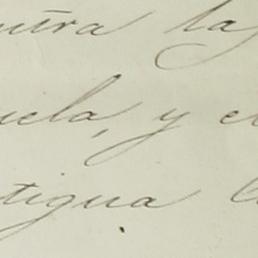 ntra la
uela, y e
tigua